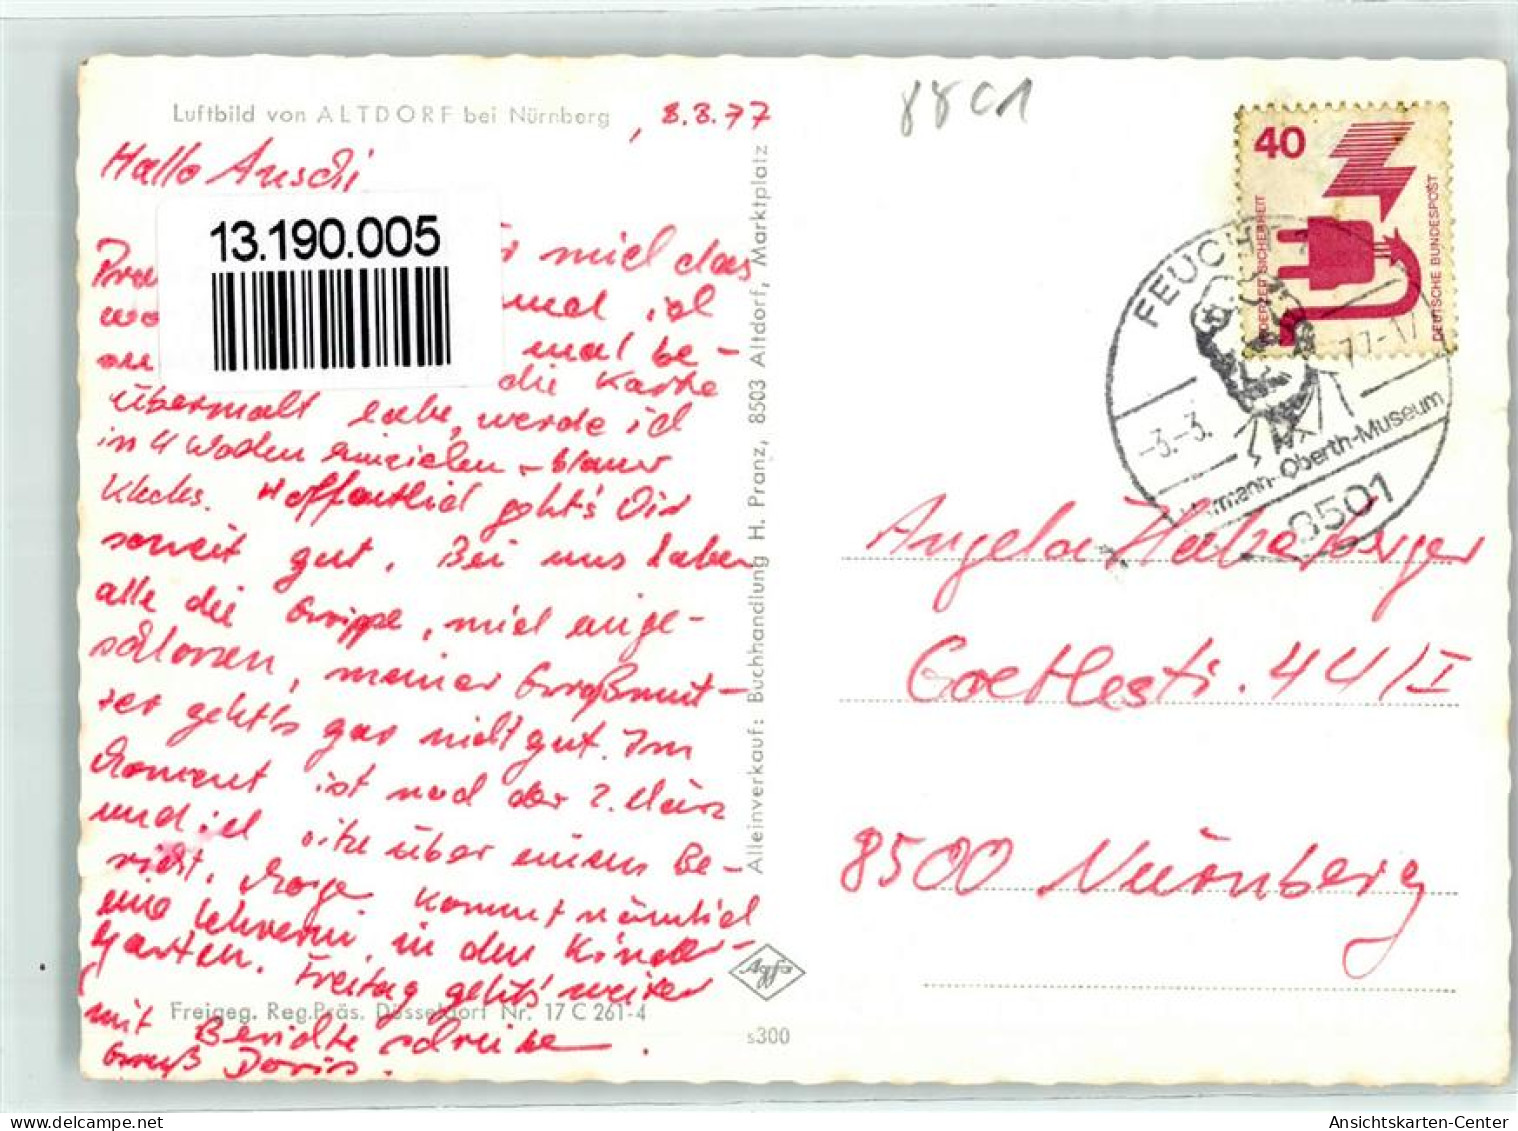 Luftbild von ALTDORF bei Nürnberg
, 3.3.77
Hallo Anschi
13.190.005
mich das
mal ich
mal be-
die Karte
übermalt habe, werde ich
in 4 Wochen einziehen - blauer
Klecks. Hoffentlich geht's Dir
soweit gut. Bei uns haben
alle die Grippe, mich einge-
schlossen, meiner Großmut-
ter geht's gar nicht gut. Im
Moment ist noch der 2. März
und ich sitze über einem Be-
richt. Morgen kommt nämlich
eine Lehrerin in den Kinder-
garten. Freitag geht's weiter
mit Berichte schreiben.
Gruß Doris.
Freigeg. Reg.Präs. Düsseldorf Nr. 17 C 261-4
Alleinverkauf: Buchhandlung H. Pranz, 8503 Altdorf, Marktplatz
Agfa
s300
88C1
40
JEDERZEIT SICHERHEIT
DEUTSCHE BUNDESPOST
FEUCHT
-3.-3. 77-17
Hermann-Oberth-Museum
8501
Angela
Goethestr. 44/I
8500 Nürnberg
delcampe.net
Ansichtskarten-Center